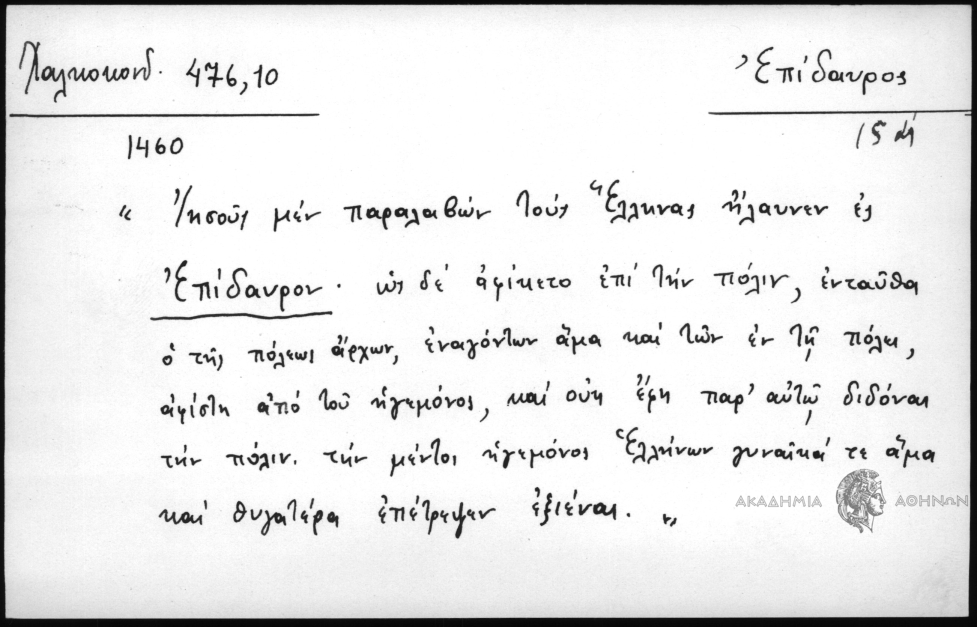 Χαλκοκονδ. 476,10
Ἐπίδαυρος
1460
" Ἰησοῦς μέν παραλαβών τούς Ἕλληνας ἤλαυνεν ἐς
Ἐπίδαυρον. ὡς δέ ἀφίκετο ἐπί τήν πόλιν, ἐνταῦθα
ὁ τῆς πόλεως ἄρχων, ἐναγόντων ἅμα καί τῶν ἐν τῇ πόλει,
ἀφίστη ἀπό τοῦ ἡγεμόνος, καί οὐκ ἔφη παρ' αὐτῷ διδόναι
τήν πόλιν. τήν μέντοι ἡγεμόνος Ἑλλήνων γυναῖκά τε ἅμα
καί θυγατέρα ἐπέτρεψεν ἐξιέναι. "
ΑΚΑΔΗΜΙΑ ΑΘΗΝΩΝ